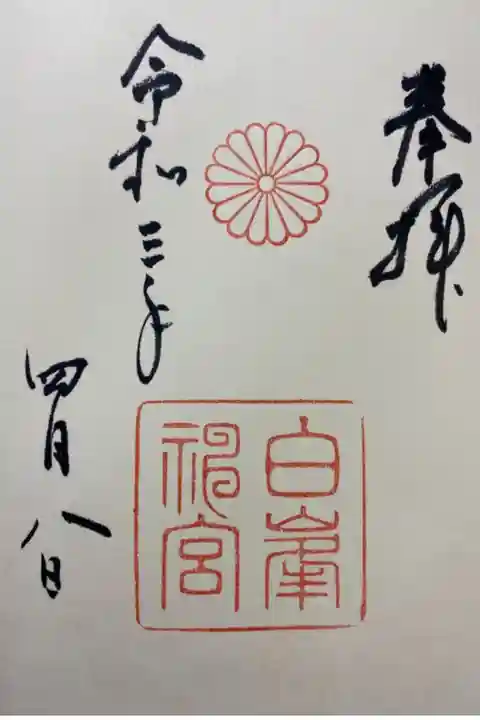 奉拝
白峯
神宮
令和三年
四月八日